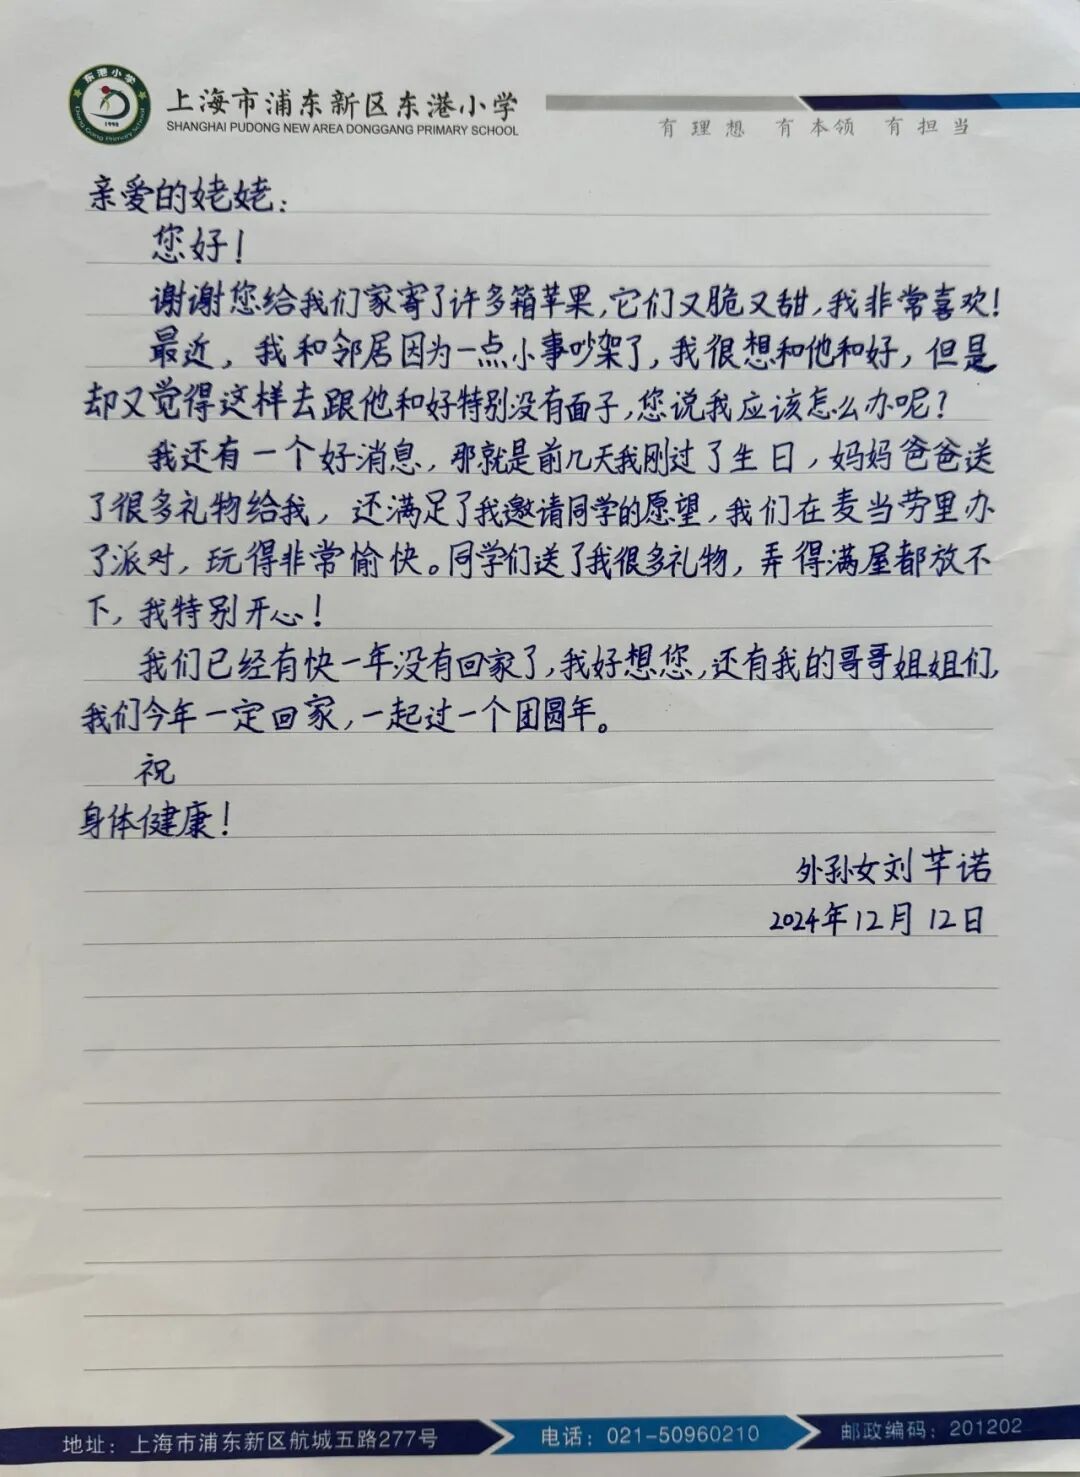 东港小学
Dong Gang Primary School
1998
上海市浦东新区东港小学
SHANGHAI PUDONG NEW AREA DONGGANG PRIMARY SCHOOL
有理想 有本领 有担当
亲爱的姥姥:
您好!
谢谢您给我们家寄了许多箱苹果,它们又脆又甜,我非常喜欢!
最近,我和邻居因为一点小事吵架了,我很想和他和好,但是
却又觉得这样去跟他和好特别没有面子,您说我应该怎么办呢?
我还有一个好消息,那就是前几天我刚过了生日,妈妈爸爸送
了很多礼物给我,还满足了我邀请同学的愿望,我们在麦当劳里办
了派对,玩得非常愉快。同学们送了我很多礼物,弄得满屋都放不
下,我特别开心!
我们已经有快一年没有回家了,我好想您,还有我的哥哥姐姐们,
我们今年一定回家,一起过一个团圆年。
祝
身体健康!
外孙女刘芊诺
2024年12月12日
地址:上海市浦东新区航城五路277号
电话:021-50960210
邮政编码:201202